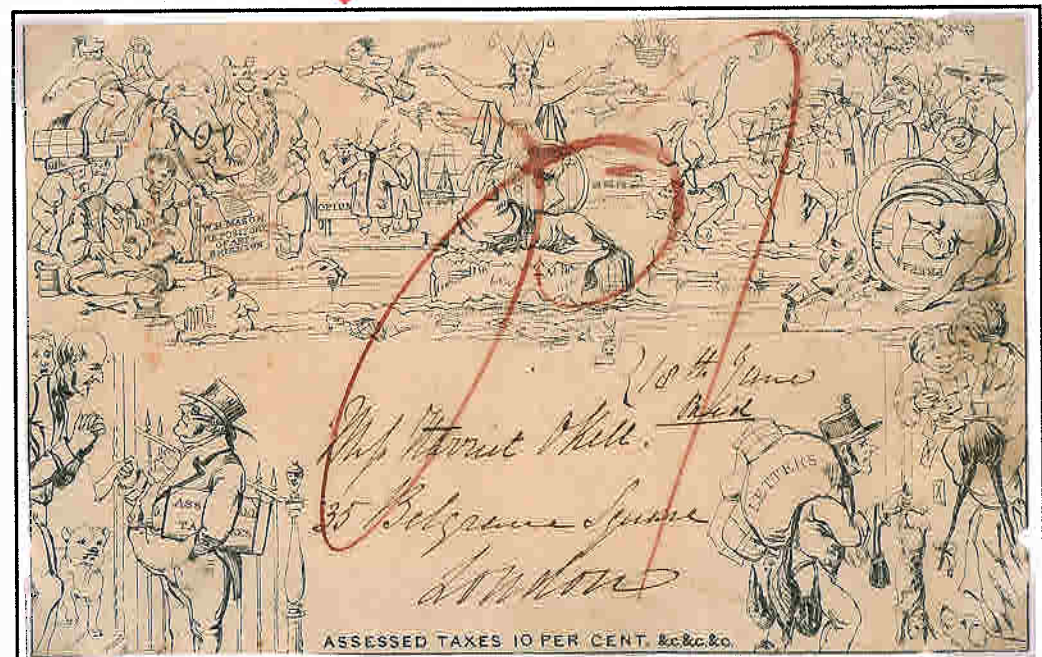 OPIUM
W. H. MASON
REPOSITORY
OF ARTS
BRIGHTON
18th June
Paid
Miss Harriet Okell.
35 Belgrave Square
London
LETTERS
ASS
TA
ASSESSED TAXES 10 PER CENT. &c.&c.&c.